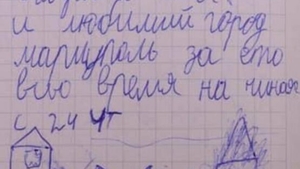 и любимий город
мариуполь за ето
все время на чиная
с 24 чт